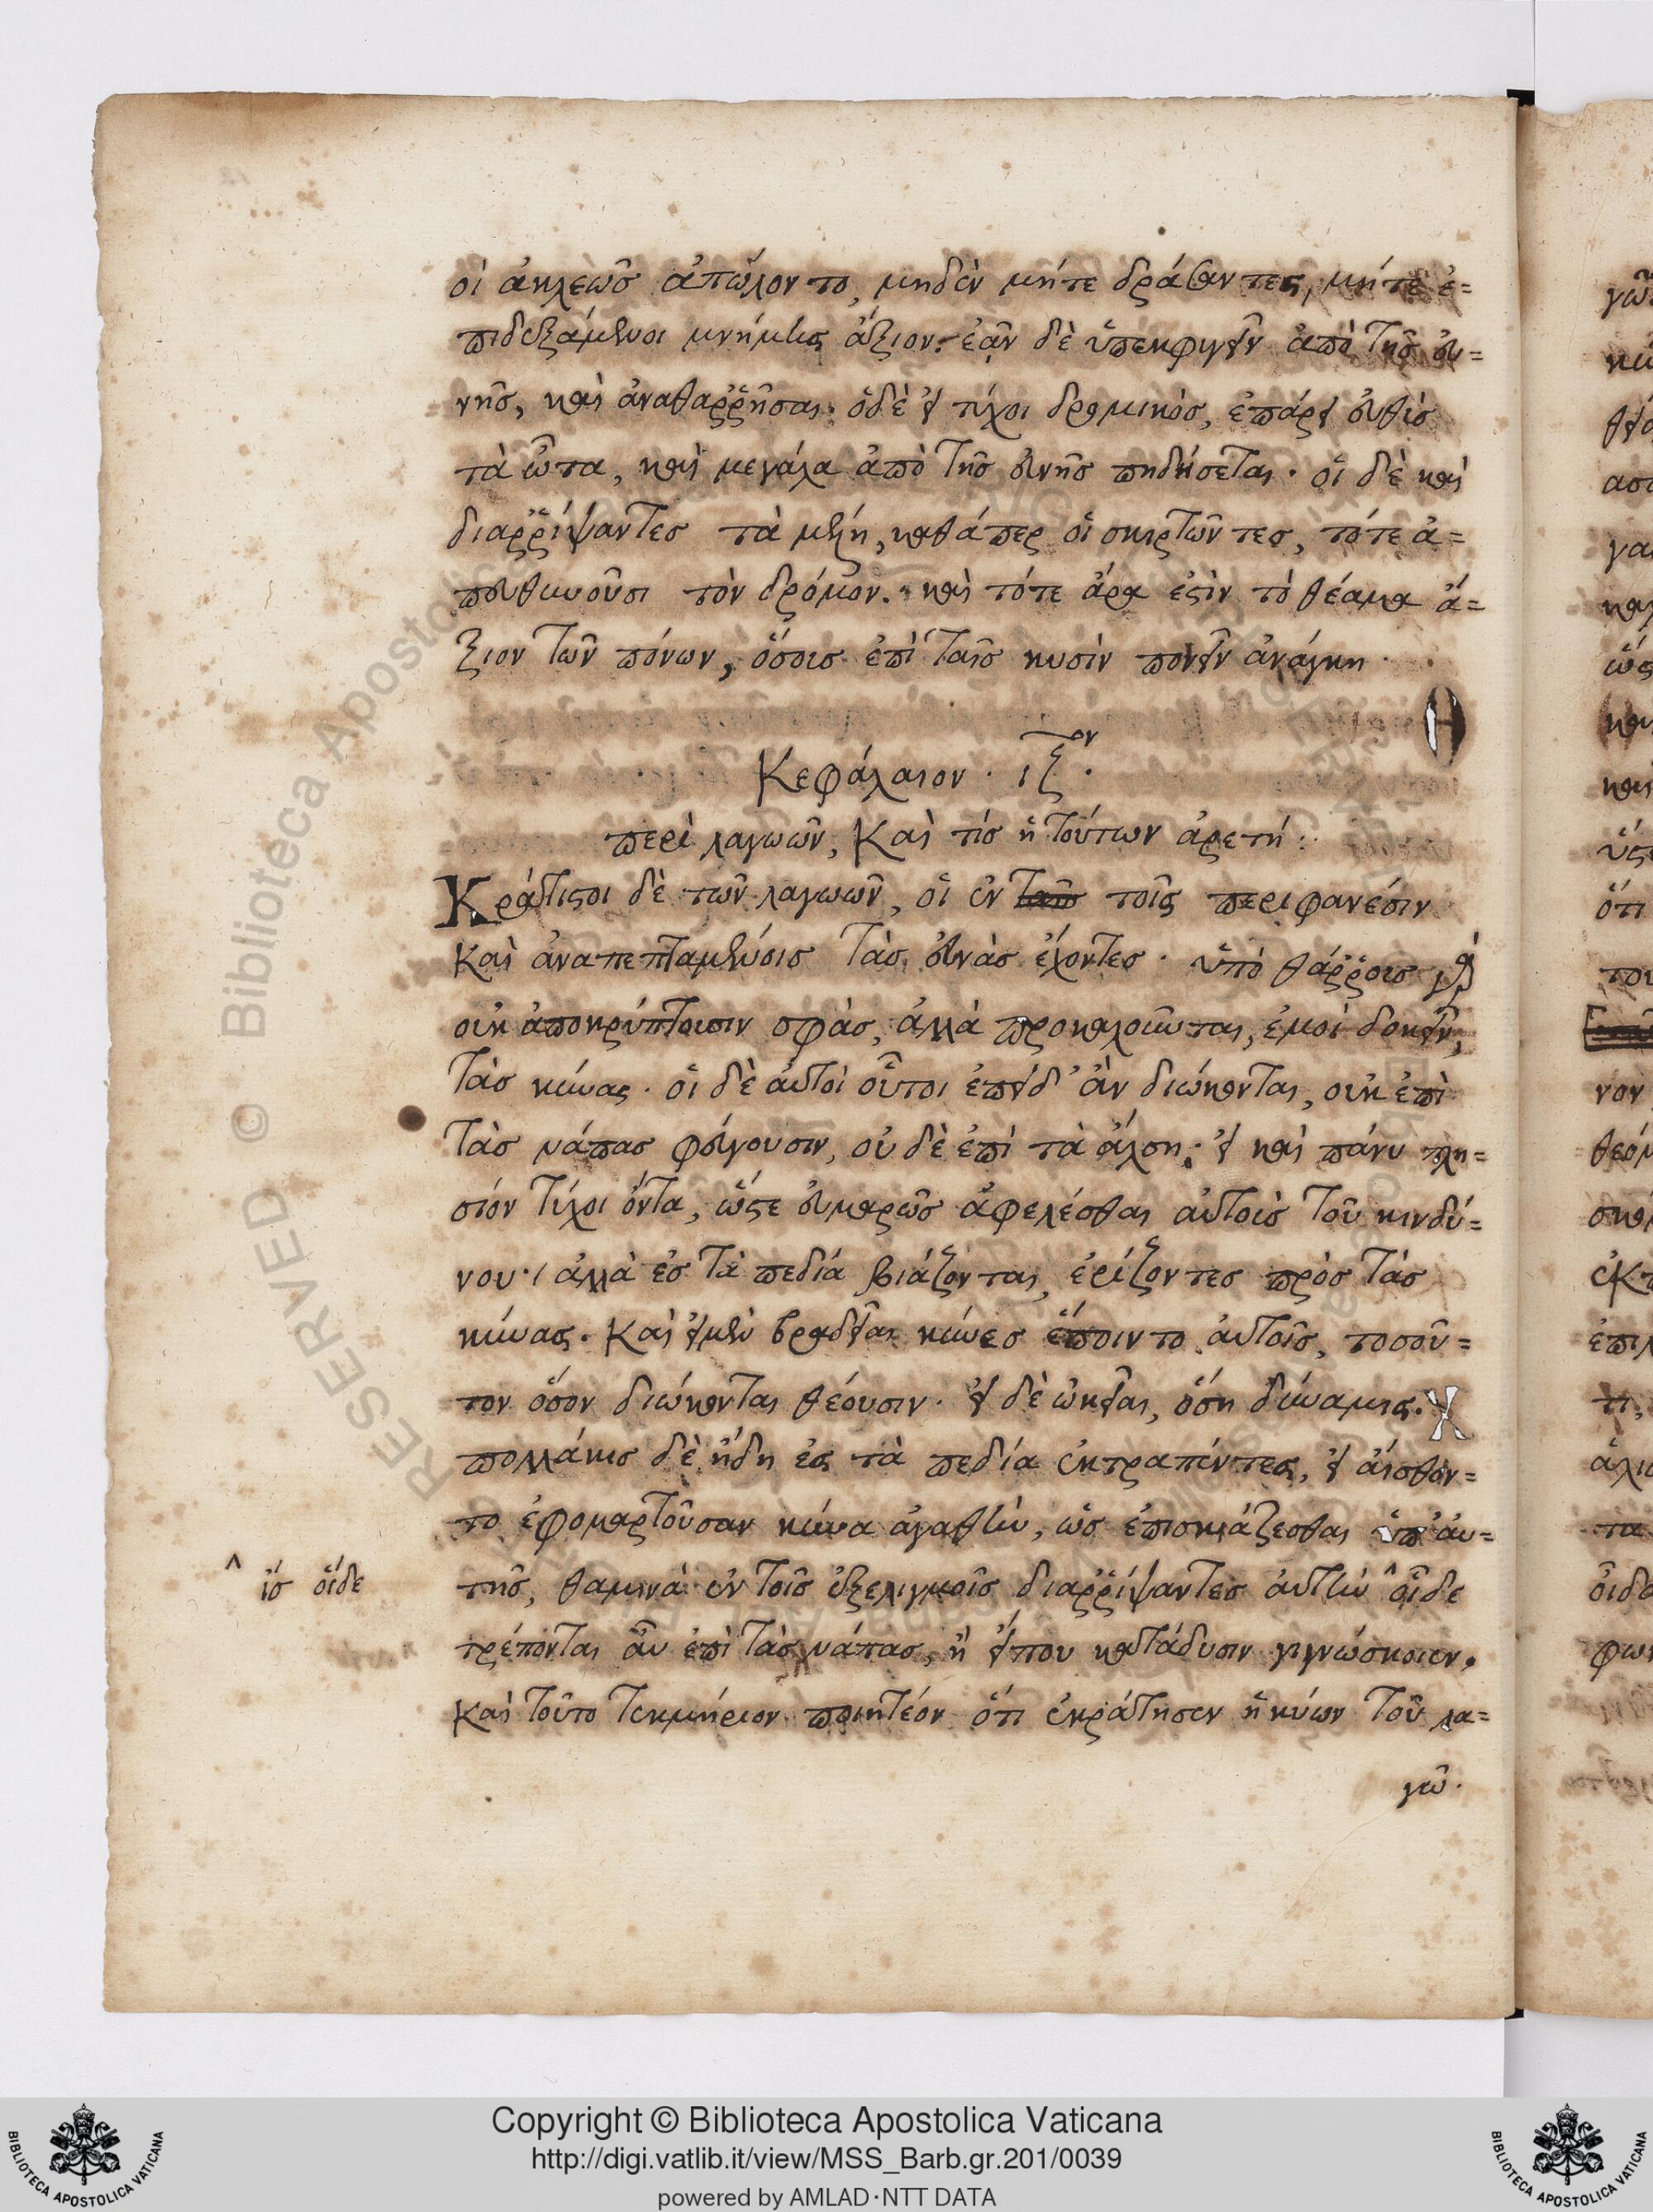 οἱ ἀκλεῶς ἀπώλοντο, μηδὲν μήτε δράσαντες, μήτε ἐ=
πιδειξάμενοι μνήμης ἄξιον· ἐὰν δὲ ὑπεκφυγεῖν ἀπὸ τῆς εὐ=
νῆς, καὶ ἀναθαῤῥῆσαι· ὁδὲ εἰ τύχοι δρομικὸς, ἐπάρει εὐθὺς
τὰ ὦτα, καὶ μεγάλα ἀπὸ τῆς εὐνῆς πηδήσεται. οἱ δὲ καὶ
διαῤῥίψαντες τὰ μέλη, καθάπερ οἱ σκιρτῶντες, τότε ἀ=
πευθύνουσι τὸν δρόμον. καὶ τότε ἄρα ἐστὶν τὸ θέαμα ἄ=
ξιον τῶν πόνων, ὅσοις ἐπὶ ταῖς κυσὶν πονεῖν ἀνάγκη.
Κεφάλαιον. ιζ.ον
περὶ λαγωῶν, Καὶ τίς ἡ τούτων ἀρετή.
Κράτιστοι δὲ τῶν λαγωῶν, οἱ ἐν ταῖς τοῖς περιφανέσιν
καὶ ἀναπεπταμένοις τὰς εὐνὰς ἔχοντες. ὑπὸ θάῤῥοις γὰρ
οὐκ ἀποκρύπτουσιν σφὰς, ἀλλὰ προκαλοῦνται, ἐμοὶ δοκεῖν,
τὰς κύνας. οἱ δὲ αὐτοὶ οὗτοι ἐπειδ' ἂν διώκωνται, οὐκ ἐπὶ
τὰς νάπας φεύγουσιν, οὐ δὲ ἐπὶ τὰ ἄλση· εἰ καὶ πάνυ πλη=
σίον τύχοι ὄντα, ὥστε εὐμαρῶς ἀφελέσθαι αὐτοὺς τοῦ κινδύ=
νου· ἀλλὰ ἐς τὰ πεδία βιάζονται, ἐρίζοντες πρὸς τὰς
κύνας. καὶ εἰ μὲν βραδεῖαι κύνες ἕποιντο αὐτοῖς, τοσοῦ=
τον ὅσον διώκονται θέουσιν. εἰ δὲ ὠκεῖαι, ὅση δύναμις.
πολλάκις δὲ ἤδη ἐς τὰ πεδία ἐκτραπέντες, εἰ αἴσθοιν=
το ἐφομαρτοῦσαν κύνα ἀγαθὴν, ὡς ἐπισκιάζεσθαι ὑπ' αὐ=
τῆς, θαμινὰ ἐν τοῖς ἐξελιγμοῖς διαῤῥίψαντες αὐτὴν ^ οἵδε
^ ὡς οἵδε
τρέπονται αὖ ἐπὶ τὰς νάπας, ἢ εἴ που κατάδυσιν γιγνώσκοιεν.
καὶ τοῦτο τεκμήριον ποιητέον ὅτι ἐκράτησεν ἡ κύων τοῦ λα=
γῶ.
Copyright © Biblioteca Apostolica Vaticana
http://digi.vatlib.it/view/MSS_Barb.gr.201/0039
powered by AMLAD·NTT DATA